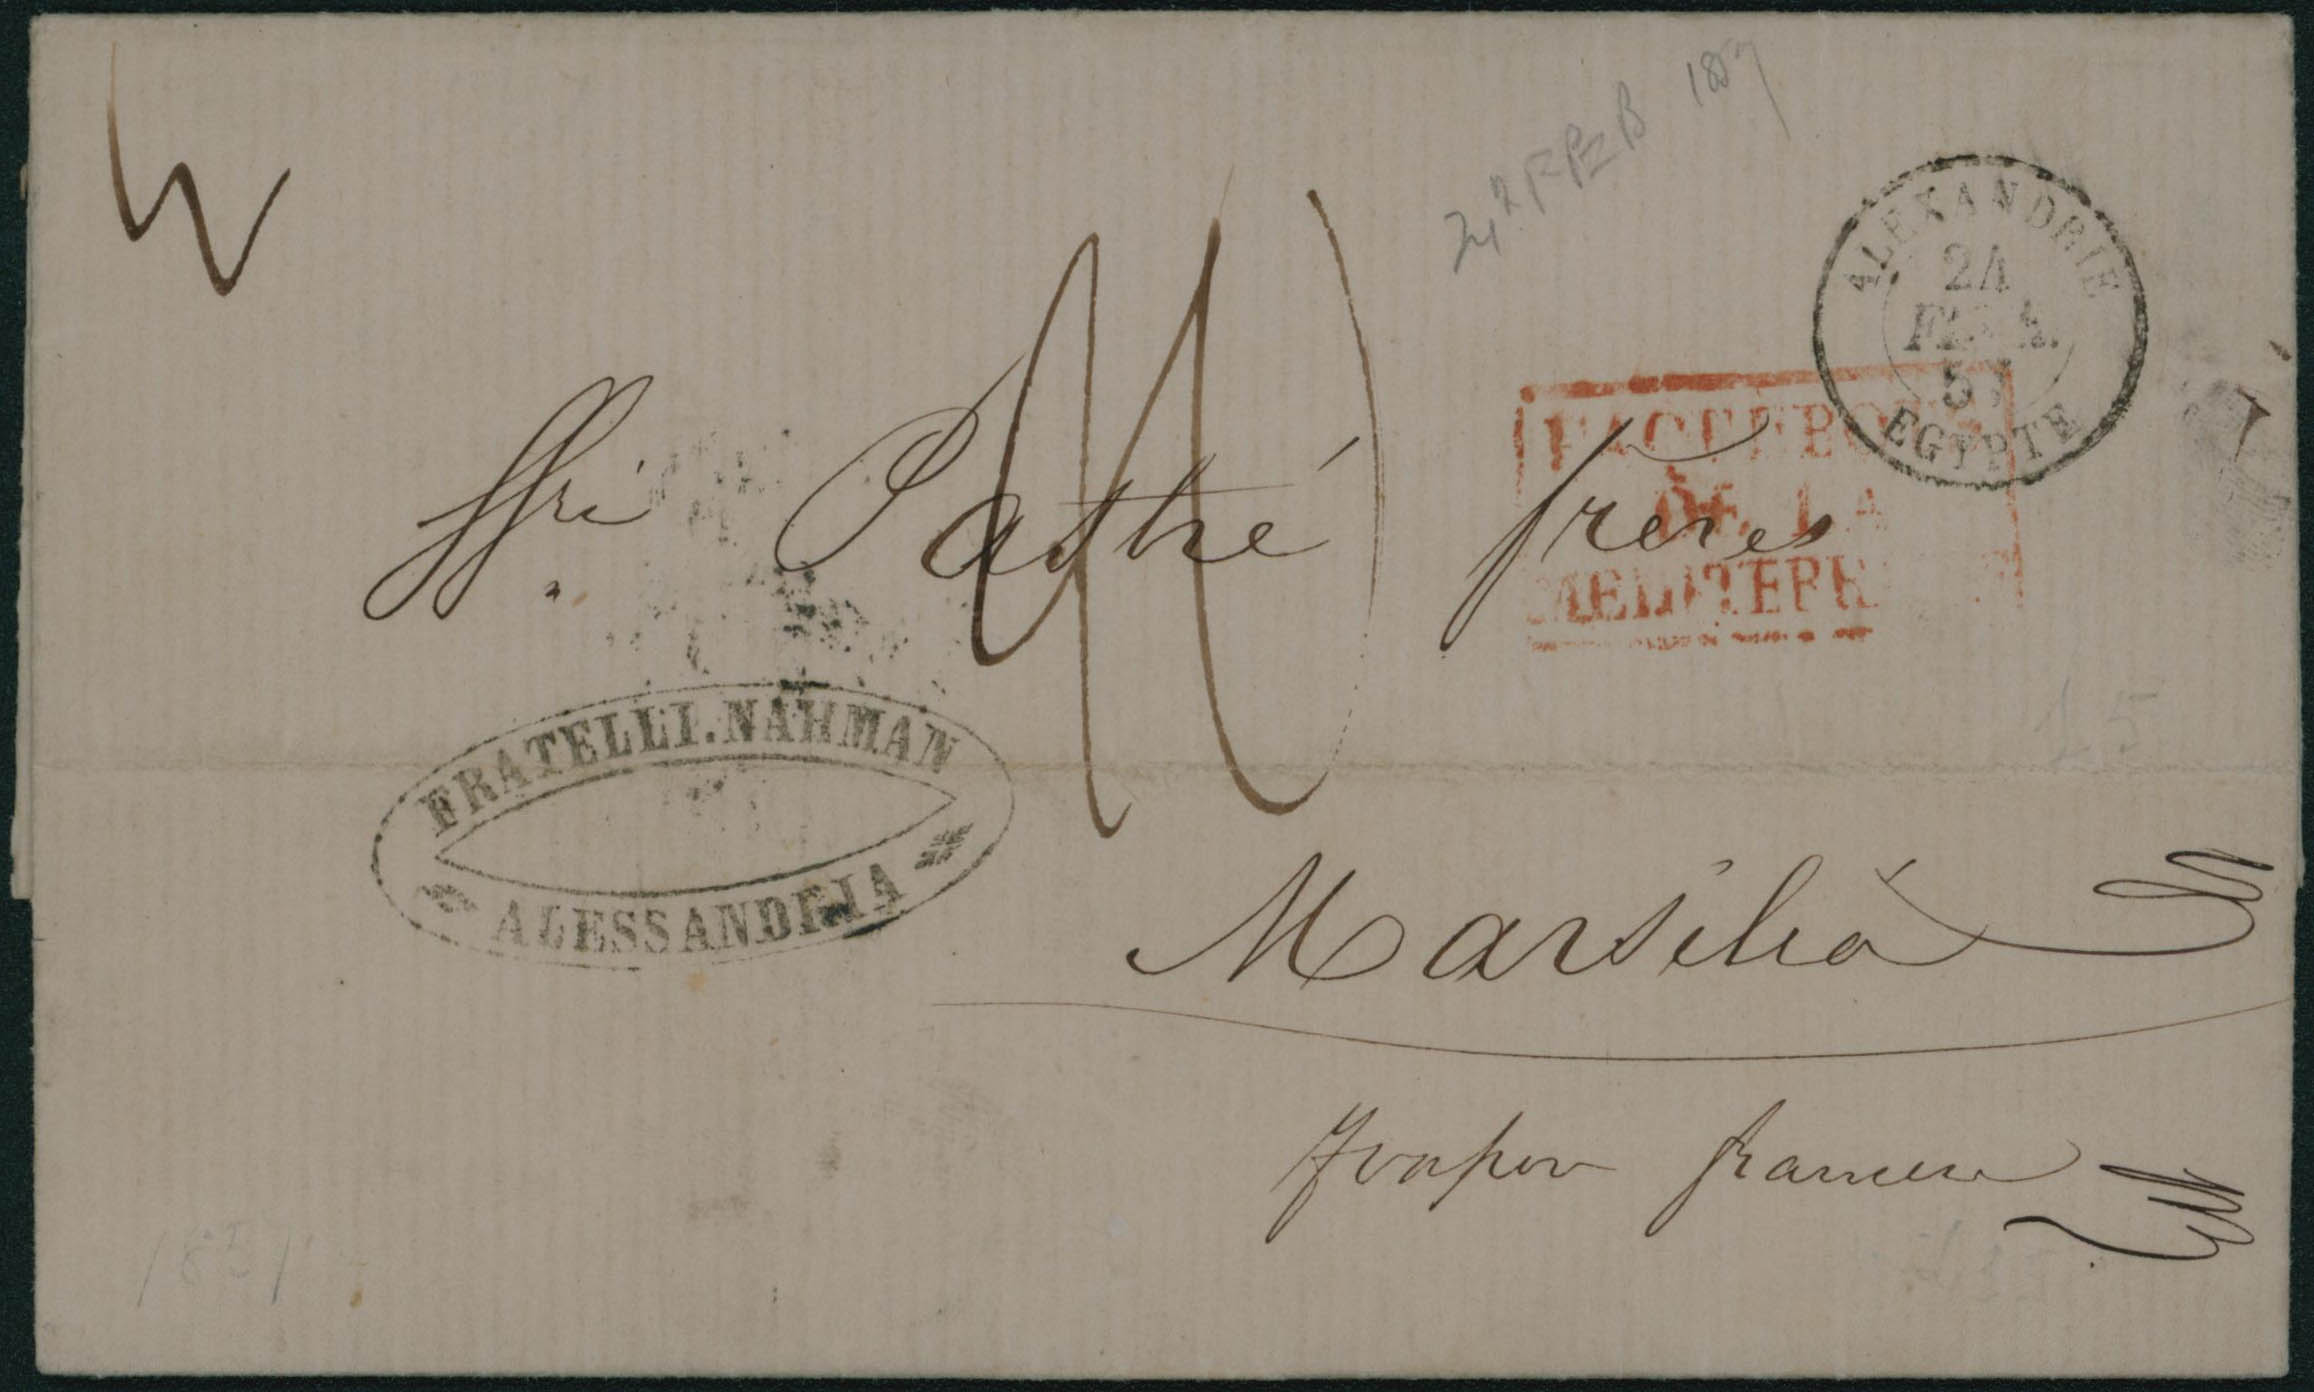 24 FEB 1857
ALEXANDRIE
24
FEVR.
57
EGYPTE
PAQUEBOTS
DE LA
MEDITERR
Pastré frères
FRATELLI.NAHMAN
ALESSANDRIA
Marsilia
francese
15